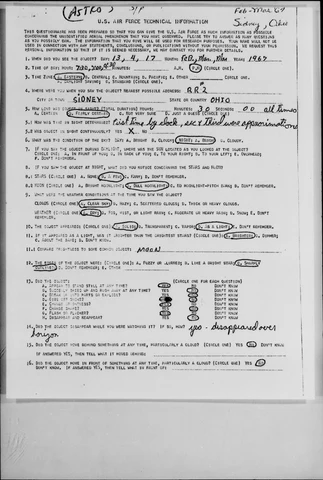 (ASTRO) 3/P Feb-Mar 67
Sidney, Ohio
U.S. AIR FORCE TECHNICAL INFORMATION
THIS QUESTIONNAIRE HAS BEEN PREPARED SO THAT YOU CAN GIVE THE U.S. AIR FORCE AS MUCH INFORMATION AS POSSIBLE
CONCERNING THE UNIDENTIFIED AERIAL PHENOMENON THAT YOU HAVE OBSERVED. PLEASE TRY TO ANSWER AS MANY QUESTIONS
AS YOU POSSIBLY CAN. THE INFORMATION THAT YOU GIVE WILL BE USED FOR RESEARCH PURPOSES. YOUR NAME WILL NOT BE
USED IN CONNECTION WITH ANY STATEMENTS, CONCLUSIONS, OR PUBLICATIONS WITHOUT YOUR PERMISSION. WE REQUEST THIS
PERSONAL INFORMATION SO THAT IF IT IS DEEMED NECESSARY, WE MAY CONTACT YOU FOR FURTHER DETAILS.
1. WHEN DID YOU SEE THE OBJECT? DAY 13, 4, 17 MONTH Feb, Mar, Mar YEAR 1967
2. TIME OF DAY: HOURS MINUTES A.M. P.M. (CIRCLE ONE).
3. TIME ZONE: A. EASTERN B. CENTRAL C. MOUNTAIN D. PACIFIC E. OTHER (CIRCLE ONE)
A. DAYLIGHT SAVING B. STANDARD (CIRCLE ONE)
4. WHERE WERE YOU WHEN YOU SAW THE OBJECT? NEAREST POSTAL ADDRESS: RR2
CITY OR TOWN SIDNEY STATE OR COUNTRY OHIO
5. HOW LONG WAS OBJECT IN SIGHT? (TOTAL DURATION) HOURS MINUTES 30 SECONDS 00 all times
A. CERTAIN B. FAIRLY CERTAIN C. NOT VERY SURE D. JUST A GUESS (CIRCLE ONE)
5.1 HOW WAS TIME IN SIGHT DETERMINED? First time by clock, sec + third were approximations
5.2 WAS OBJECT IN SIGHT CONTINUOUSLY? YES X NO
6. WHAT WAS THE CONDITION OF THE SKY? DAY: A. BRIGHT B. CLOUDY NIGHT: A. BRIGHT B. CLOUDY
7. IF YOU SAW THE OBJECT DURING DAYLIGHT, WHERE WAS THE SUN LOCATED AS YOU LOOKED AT THE OBJECT?
(CIRCLE ONE): A. IN FRONT OF YOU B. IN BACK OF YOU C. TO YOUR RIGHT D. TO YOUR LEFT E. OVERHEAD
F. DON'T REMEMBER.
8. IF YOU SAW THE OBJECT AT NIGHT, WHAT DID YOU NOTICE CONCERNING THE STARS AND MOON?
8.1 STARS (CIRCLE ONE) A. NONE B. A FEW C. MANY D. DON'T REMEMBER.
8.2 MOON (CIRCLE ONE) A. BRIGHT MOONLIGHT B. DULL MOONLIGHT C. NO MOONLIGHT-PITCH DARK D. DON'T REMEMBER.
9. WHAT WERE THE WEATHER CONDITIONS AT THE TIME YOU SAW THE OBJECT?
CLOUDS (CIRCLE ONE) A. CLEAR SKY B. HAZY C. SCATTERED CLOUDS D. THICK OR HEAVY CLOUDS.
WEATHER (CIRCLE ONE) A. DRY B. FOG, MIST, OR LIGHT RAIN C. MODERATE OR HEAVY RAIN D. SNOW E. DON'T
REMEMBER.
10. THE OBJECT APPEARED (CIRCLE ONE): A. SOLID B. TRANSPARENT C. VAPOR D. AS A LIGHT E. DON'T REMEMBER.
11. IF IT APPEARED AS A LIGHT, WAS IT BRIGHTER THAN THE BRIGHTEST STARS? (CIRCLE ONE) A. BRIGHTER B. DIMMER
C. ABOUT THE SAME D. DON'T KNOW.
11.1 COMPARE BRIGHTNESS TO SOME COMMON OBJECT: MOON
12. THE EDGES OF THE OBJECT WERE (CIRCLE ONE): A. FUZZY OR BLURRED B. LIKE A BRIGHT STAR C. SHARPLY
OUTLINED D. DON'T REMEMBER E. OTHER
13. DID THE OBJECT: (CIRCLE ONE FOR EACH QUESTION)
A. APPEAR TO STAND STILL AT ANY TIME? YES NO DON'T KNOW
B. SUDDENLY SPEED UP AND RUSH AWAY AT ANY TIME? YES NO DON'T KNOW
C. BREAK UP INTO PARTS OR EXPLODE? YES NO DON'T KNOW
D. GIVE OFF SMOKE? YES NO DON'T KNOW
E. CHANGE BRIGHTNESS? YES NO DON'T KNOW
F. CHANGE SHAPE? YES NO DON'T KNOW
G. FLASH OR FLICKER? YES NO DON'T KNOW
H. DISAPPEAR AND REAPPEAR? YES NO DON'T KNOW
14. DID THE OBJECT DISAPPEAR WHILE YOU WERE WATCHING IT? IF SO, HOW? yes - disappeared over
horizon
15. DID THE OBJECT MOVE BEHIND SOMETHING AT ANY TIME, PARTICULARLY A CLOUD? (CIRCLE ONE) YES NO DON'T KNOW
IF ANSWERED YES, THEN TELL WHAT IT MOVED BEHIND:
16. DID THE OBJECT MOVE IN FRONT OF SOMETHING AT ANY TIME, PARTICULARLY A CLOUD? (CIRCLE ONE) YES NO
DON'T KNOW. IF ANSWERED YES, THEN TELL WHAT IN FRONT OF: